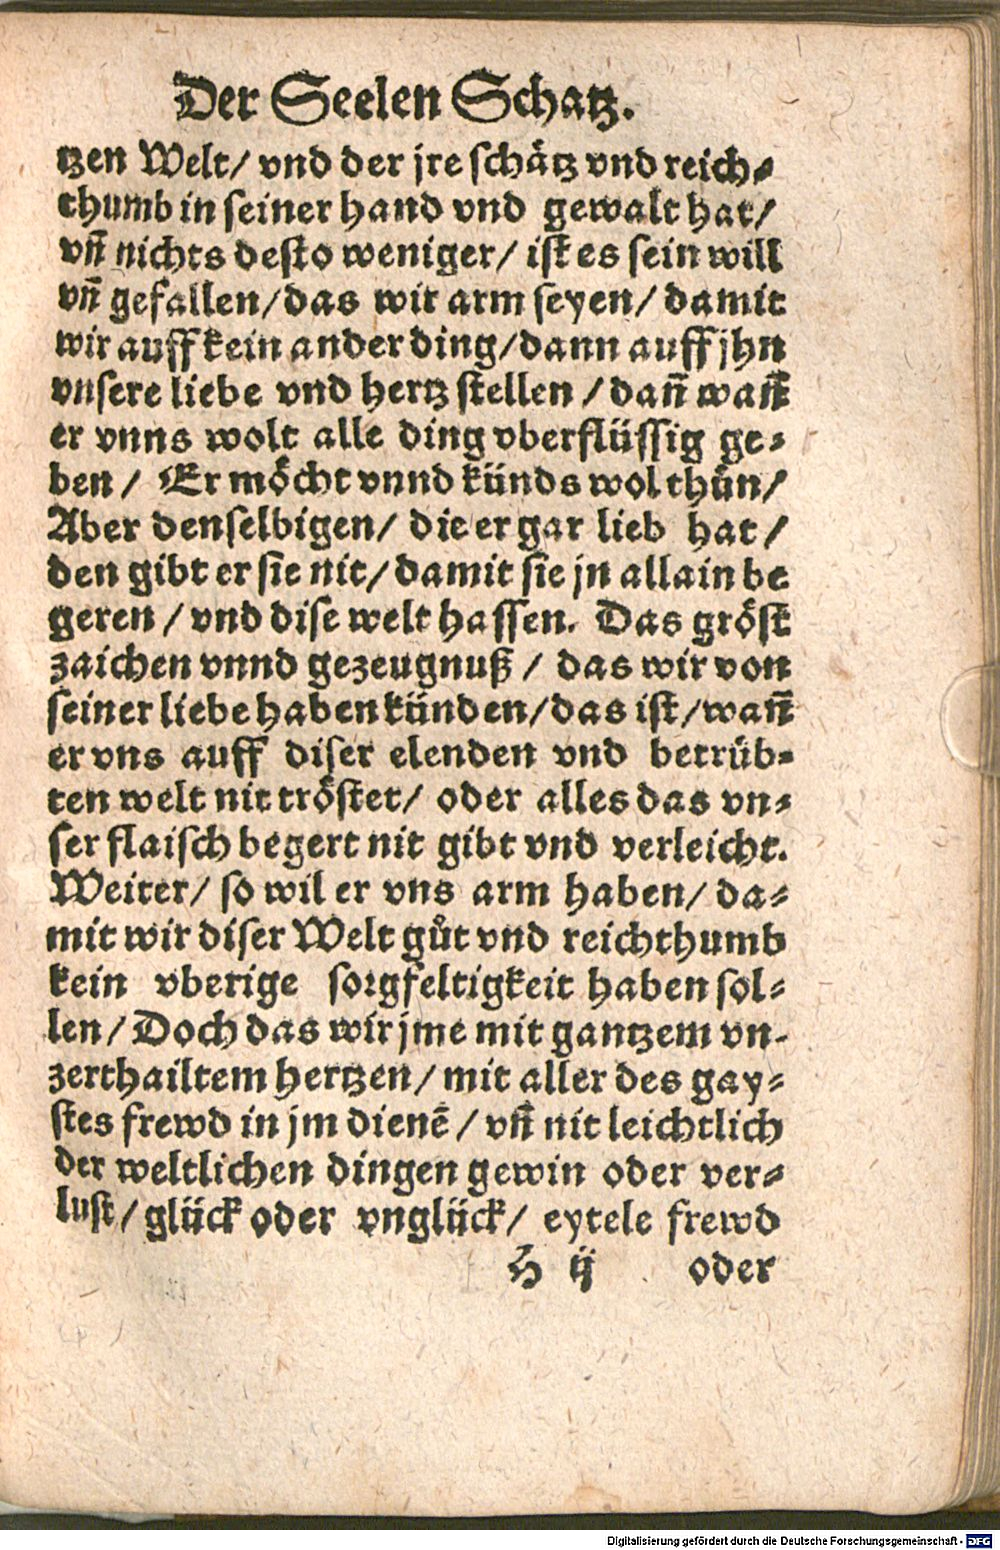 Der Seelen Schatz.
tzen Welt/ vnd der jre schätz vnd reich-
thumb in seiner hand vnd gewalt hat/
vñ nichts desto weniger/ ist es sein will
vñ gefallen/das wir arm seyen/ damit
wir auff kein ander ding/dann auff jhn
vnsere liebe vnd hertz stellen / dañ wañ
er vnns wolt alle ding vberflüssig ge-
ben / Er möcht vnnd künds wol thůn/
Aber denselbigen/ die er gar lieb hat /
den gibt er sie nit/ damit sie jn allain be
geren / vnd dise welt hassen. Das gröst
zaichen vnnd gezeugnuß / das wir von
seiner liebe haben künden/das ist/wañ
er vns auff diser elenden vnd betrüb-
ten welt nit tröstet/ oder alles das vn-
ser flaisch begert nit gibt vnd verleicht.
Weiter/ so wil er vns arm haben/ da-
mit wir diser Welt gůt vnd reichthumb
kein vberige sorgfeltigkeit haben sol-
len/ Doch das wir jme mit gantzem vn-
zerthailtem hertzen/ mit aller des gay-
stes frewd in jm dienẽ / vñ nit leichtlich
der weltlichen dingen gewin oder ver-
lust/ glück oder vnglück/ eytele frewd
H ij oder
Digitalisierung gefördert durch die Deutsche Forschungsgemeinschaft - DFG